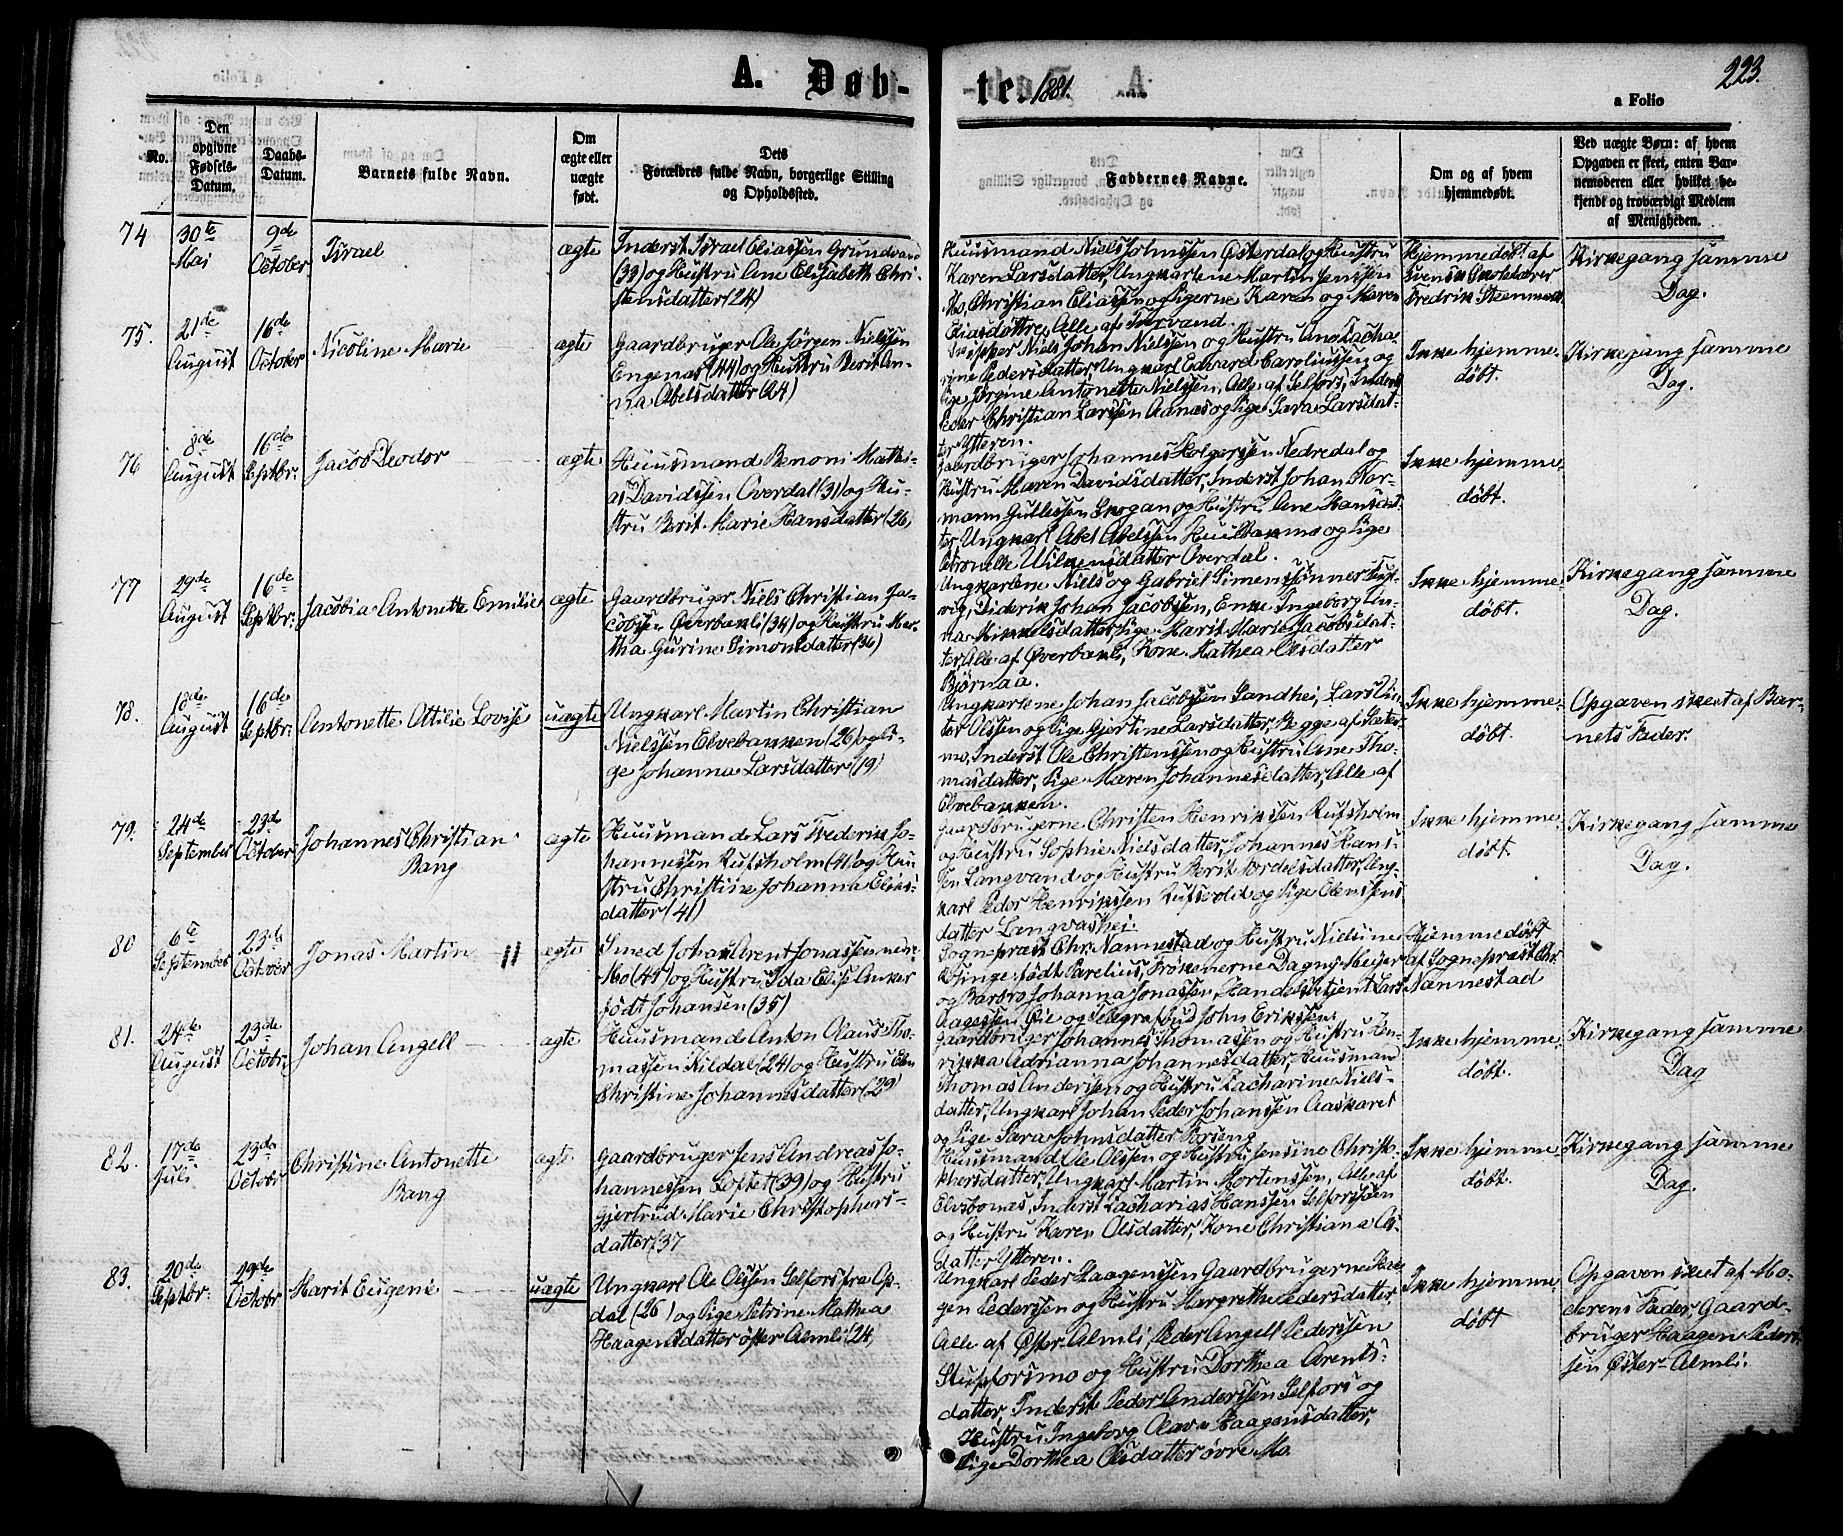 A. Døb-
te. 1881.
223.
a Folio
No.
Den opgivne Fødsels-Datum.
Daabs-Datum.
Barnets fulde Navn.
Om ægte eller uægte født.
Dets Forældres fulde Navn, borgerlige Stilling og Opholdssted.
Faddernes Navne.
Om og af hvem hjemmedøbt.
Ved uægte Børn: af hvem Opgaven er skeet, enten Barnemoderen eller hvilket bekjendt og troværdigt Medlem af Menigheden.
74
30te Mai
9de October
Israel
ægte
Inderst Israel Eliassen Grundvand
(33) og Hustru Ane Elisabeth Chri-
stensdatter (24)
Huusmand Niels Johnssen Østerdal og Hustru
Karen Larsdatter, Ungkarlene Martin Jenssen
Mo, Christian Eliassen og Pigerne Karen og Maren
Eliasdøttre, Alle af
Hjemmedøbt af
svensk Skolelærer
Fredrik
Kirkegang samme
Dag.
75.
21de August
16de October
Nicoline Marie
ægte
Gaardbruger Ole Jørgen Nielssen
Engenæs (44) og Hustru Berit An-
na Abelsdatter (24)
Skipper Niels Johan Nielssen og Hustru Ane Zacha-
rine Pedersdatter, Ungkarl Edvard Caroliussen og
Pige Jørgine Antonette Nielssen, Alle af Selfors, Inderst
Peder Christian Larssen Aanæs og Pige Sara Larsdat-
ter Ytteren.
Ikke hjemme-
døbt.
Kirkegang samme
Dag.
76
8de August
16de Septbr:
Jacob Deodor
ægte
Huusmand Benoni Mathi-
as Davidssen Overdal (31) og Hu-
stru Berit Marie Hansdatter (26)
Gaardbruger Johannes Holgerssen Nedredal og
Hustru Maren Davidsdatter, Inderst Johan Nor-
mann Gullessen Skogan og Hustru Ane Hansdat-
ter, Ungkarl Abel Abelssen og Pige
Petronelle datter Overdal.
Ikke hjemme-
døbt.
77
29de August
16de Septbr:
Jacobia Antonette Emilie
ægte
Gaardbruger Niels Christian Ja-
cobsen Øverbakli (34) og Hustru Mar-
tha Gurine Simonsdatter (36)
Ungkarlene Niels og Gabriel Simenssønner
vig, Diderik Johan Jacobssen, Enke Ingeborg An-
na Mikkelsdatter, Pige Marit Marie Jacobsdat-
ter, Alle af Øverbakli, Kone Mathea Olsdatter
Bjørnaa.
Ikke hjemme-
døbt.
Kirkegang samme
Dag.
78.
18de August
16de Septbr:
Antonette Ottilie Lovise
uægte
Ungkarl Martin Christian
Nielssen Elvebakken (26) og Pi-
ge Johanna Larsdatter (19)
Ungkarlene Johan Jacobssen Sandhei, Lars
Olssen og Pige Gjertine Larsdatter, Begge af Sæter-
mo, Inderst Ole Christenssen og Hustru Ane Tho-
masdatter, Pige Maren Johannesdatter, Alle af
Elvebakken.
Ikke hjemme-
døbt.
Opgaven skeet af Bar-
nets Fader.
79.
24de September
23de October
Johannes Christian
Bang
ægte
Huusmand Lars Frederik Jo-
hannessen Rufsholm (41) og Hu-
stru Christine Johanna Elias-
datter (41)
Gaardbrugerne Christen Henrikssen Rufsholm
og Hustru Sophie Nielsdatter, Johannes Hans-
sen Langvand og Hustru Berit Tordelsdatter, Ung-
karl Peder Henrikssen og Pige
datter Langvashei.
Ikke hjemme-
døbt.
Kirkegang samme
Dag.
80
6te September
23de October
Jonas Martin
ægte
Smed Johan Arent Jonassen nedre
Mo (44) og Hustru Ida Elise Anker
født Johansen (35)
Sognepræst Chr. Nannestad og Hustru Nielsine
Kinge født Parelius, Frøknerne Dagny Meijer
og Barbro Johanna Jonassen, Handelsbetjent Lars
Aagessen Øie og Telegrafbud John Erikssen.
Hjemmedøbt
af Sognepræst Chr.
Nannestad
81.
24de August
23de Octobr.
Johan Angell
ægte
Huusmand Anton Olaus Tho-
massen Kildal (24) og Hustru Elen
Christine Johannesdatter (29)
Gaardbruger Johannes Thomassen og Hustru Hen-
rikka Adrianna Johannesdatter, Huusmand
Thomas Anderssen og Hustru Zacharine Niels-
datter, Ungkarl Johan Peder Johanssen Aaskaret
og Pige Sara Johnsdatter Forseng
Ikke hjemme-
døbt.
Kirkegang samme
Dag
82.
17de Juli
23de Octobr
Christine Antonette
Bang
ægte
Gaardbruger Jens Andreas Jo-
hannessen Loftet (39) og Hustru
Gjertrud Marie Christophers-
datter (37
Huusmand Ole Olssen og Hustru Jensine Christo-
phersdatter, Ungkarl Martin Mortenssen, Alle af
Inderst Zacharias Hanssen
og Hustru Karen Olsdatter, Kone Christiane
datter Ytteren.
Ikke hjemme-
døbt.
Kirkegang samme
Dag.
83.
20de Septbr:
29de Octobr
Marit Eugenie
uægte
Ungkarl Ole Olssen Selfors fra Op-
dal (26) og Pige Petrine Mathea
Haagensdatter Øster Almli (24)
Ungkarl Peder Haagenssen, Gaardbrugerne Haa-
gen Pederssen og Hustru Margrethe Pedersdatter,
Alle af Øster Almli, Peder Angell Pederssen
Stupforsmo og Hustru Dorthea Arents-
datter, Inderst Peder Anderssen Selfors og
Hustru Ingeborg Olava Haagensdatter,
Pige Dorthea Olsdatter øvre Mo.
Ikke hjemme-
døbt
Opgaven skeet af Mo-
derens Fader, Gaard-
bruger Haagen Peders-
sen Øster Almli.